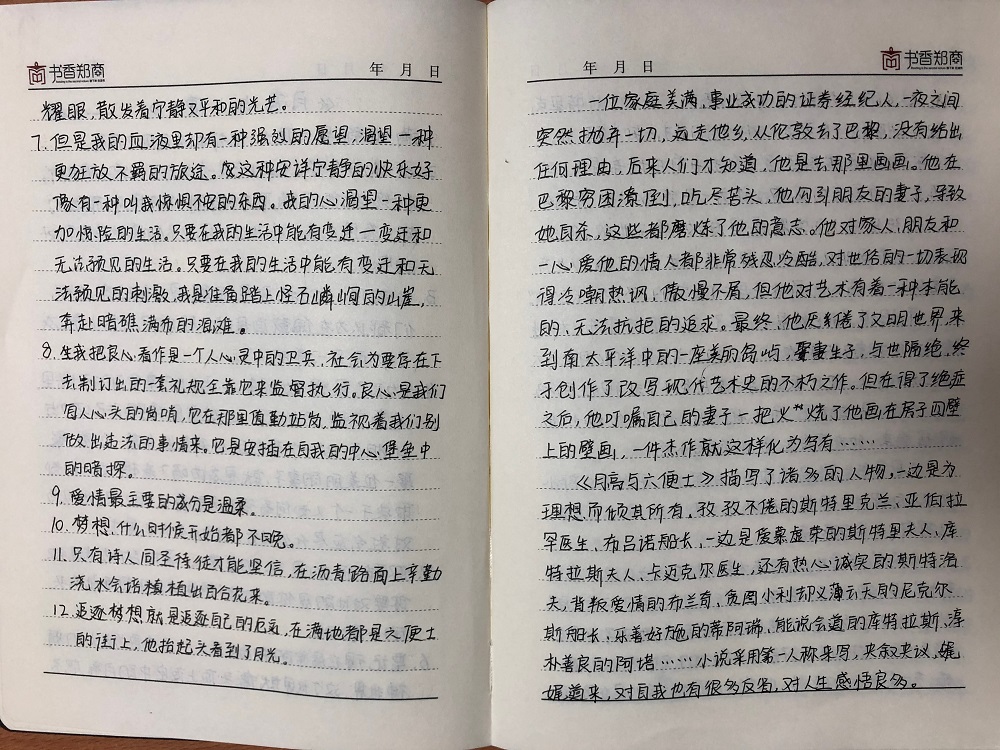 书香郑商
年 月 日
耀眼，散发着宁静又平和的光芒。
7. 但是我的血液里却有一种强烈的愿望，渴望一种
更狂放不羁的旅途。这种安详宁静的快乐好
像有一种叫我惊惧不安的东西。我的心渴望一种更
加惊险的生活。只要在我的生活中能有变迁—变迁和
无法预见的生活。只要在我的生活中能有变迁和无
法预见的刺激，我是准备踏上怪石嶙峋的山崖，
奔赴暗礁满布的海滩。
8. 我把良心看作是一个人心灵中的卫兵，社会为要存在下
去制订出的一套礼规全靠它来监督执行。良心是我们
每人心头的岗哨，它在那里值勤站岗，监视着我们别
做出违法的事情来。它是安插在自我的中心堡垒中
的暗探。
9. 爱情最主要的成分是温柔。
10. 梦想，什么时候开始都不晚。
11. 只有诗人同圣徒才能坚信，在沥青路面上辛勤
浇水会培植出百合花来。
12. 追逐梦想就是追逐自己的厄运，在满地都是六便士
的街上，他抬起头看到了月光。
书香郑商
年 月 日
一位家庭美满，事业成功的证券经纪人，一夜之间
突然抛弃一切，远走他乡，从伦敦去了巴黎，没有给出
任何理由，后来人们才知道，他是去那里画画。他在
巴黎穷困潦倒，吃尽苦头，他勾引朋友的妻子，导致
她自杀，这些都磨炼了他的意志。他对家人、朋友和
一心爱他的情人都非常残忍冷酷，对世俗的一切表现
得冷嘲热讽，傲慢不屑，但他对艺术有着一种本能
的、无法抗拒的追求。最终，他厌倦了文明世界，来
到南太平洋中的一座美丽岛屿，娶妻生子，与世隔绝，终
于创作了改写现代艺术史的不朽之作。但在得了绝症
之后，他叮嘱自己的妻子一把火烧了他画在房子四壁
上的壁画，一件杰作就这样化为乌有……
《月亮与六便士》描写了诸多的人物，一边是为
理想而倾其所有、孜孜不倦的斯特里克兰、亚伯拉
罕医生、布吕诺船长，一边是爱慕虚荣的斯特里夫人、库
特拉斯夫人、卡迈克尔医生，还有热心诚实的斯特洛
夫，背叛爱情的布兰奇、贪图小利却义薄云天的尼克尔
斯船长、乐善好施的蒂阿瑞、能说会道的库特拉斯、淳
朴善良的阿塔……小说采用第一人称来写，夹叙夹议，娓
娓道来，对自我也有很多反省，对人生感悟良多。